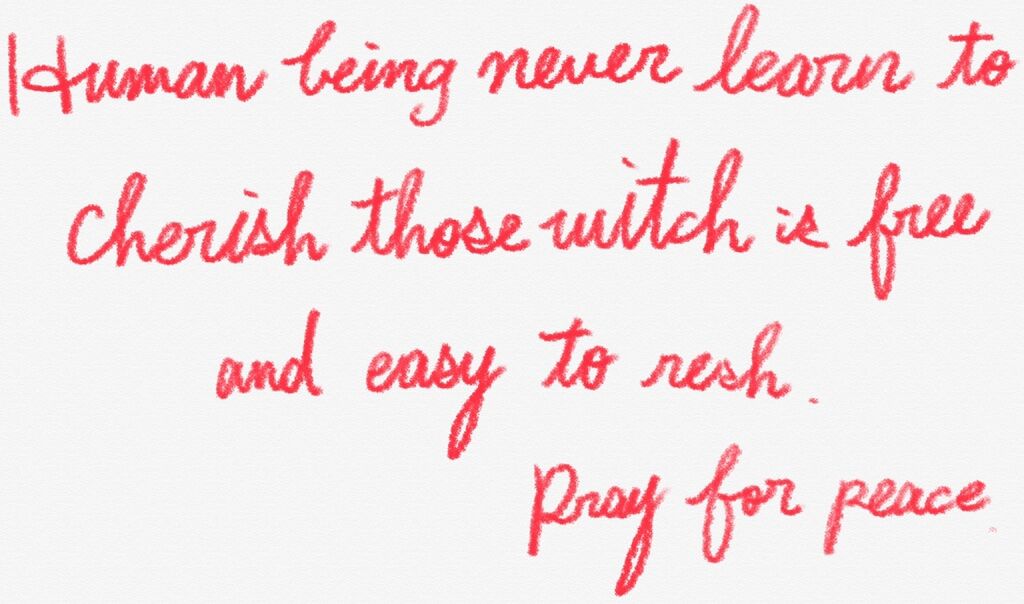 Human being never learn to
cherish those witch is free
and easy to resh.
Pray for peace.